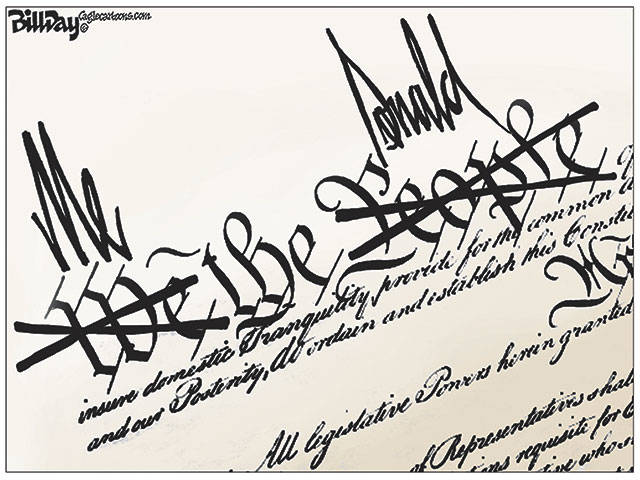 BillDay ©Caglecartoons.com
Me Donald
We the People
insure domestic Tranquility, provide for the common
and our Posterity, do ordain and establish this Constitu
All legislative Powers herein granted
of Representatives shal
tions requisite for